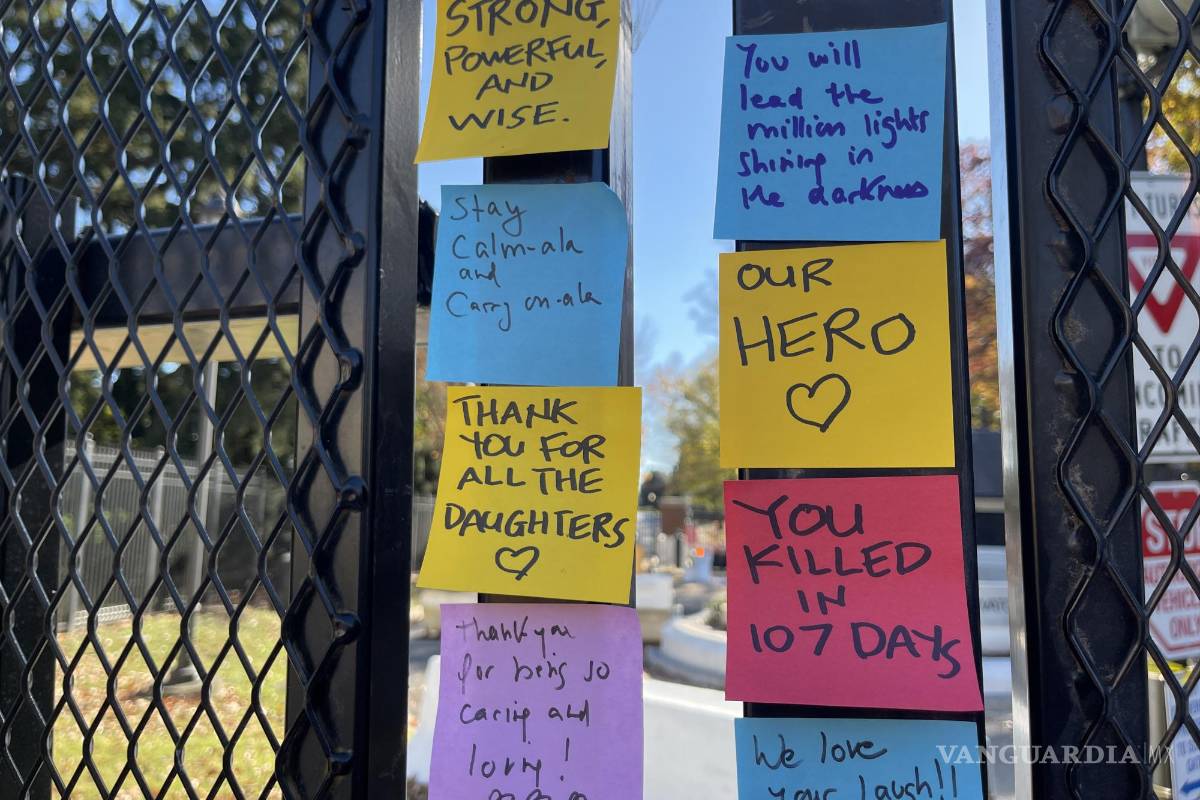 STRONG,
POWERFUL,
AND
WISE.
Stay
Calm-ala
and
Carry on-ala
THANK
YOU FOR
ALL THE
DAUGHTERS
Thank you
for being so
caring and
loving!
You will
lead the
million lights
shining in
the darkness
OUR
HERO
YOU
KILLED
IN
107 DAYS
We love
your laugh!!
TO
STOP
VEHICLE
ONLY
VANGUARDIA|MX